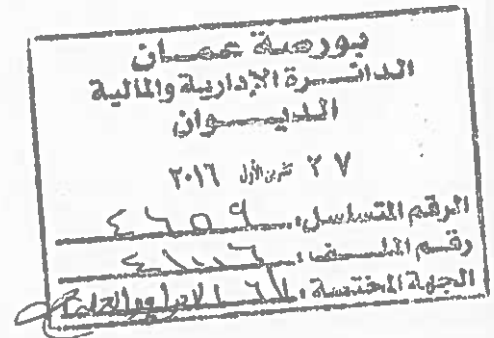 بورصة عمان
الدائرة الإدارية والمالية
الديوان
٢٧ تشرين الأول ٢٠١٦
الرقم المتسلسل: ٤٦٥٩
رقم الملف:
الجهة المختصة: الإدراج